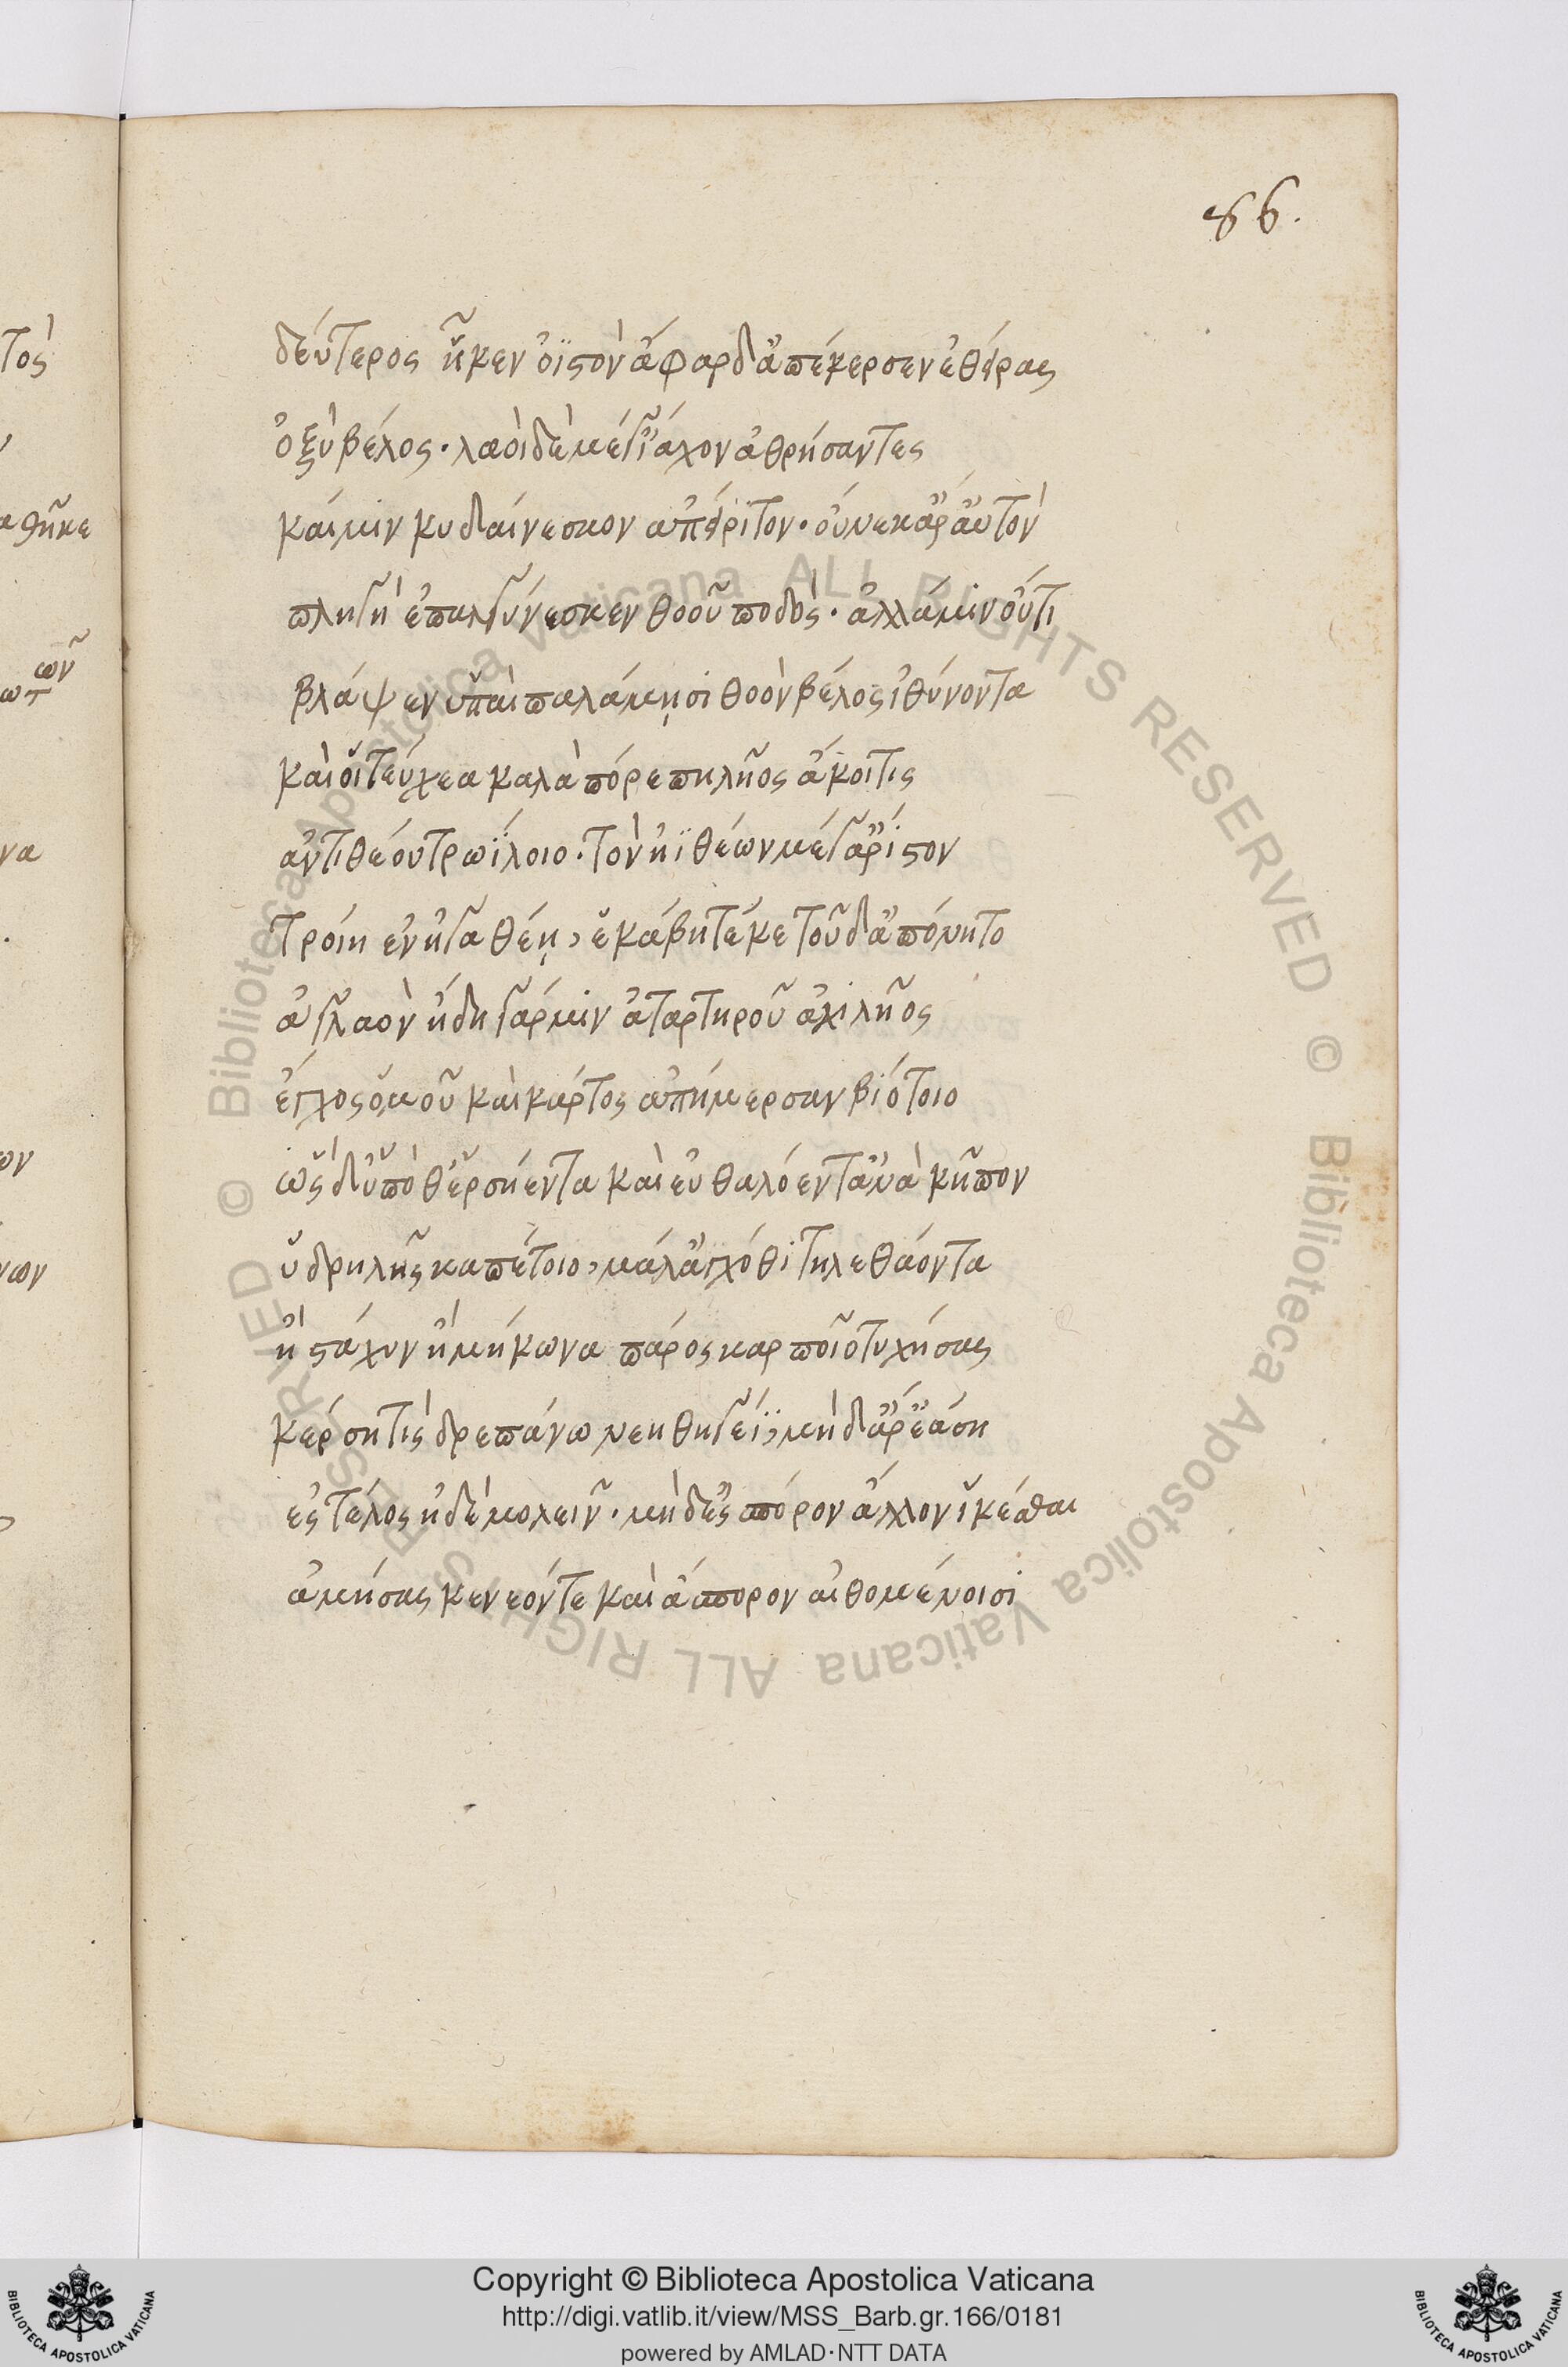 86.
δεύτερος ἧκεν ὀϊστὸν ἄφαρ δ' ἀπέκερσεν ἐθείρας
ὀξὺ βέλος· λαοὶ δὲ μέγ' ἴαχον ἀθρήσαντες
καί μιν κυδαίνεσκον ἀπείριτον· οὕνεκ' ἄρ' αὐτὸν
πληγὴ ἐπαλγύνεσκεν θοοῦ ποδὸς· ἀλλά μιν οὔτι
βλάψεν ὑπαὶ παλάμῃσι θοὸν βέλος ἰθύνοντα
καὶ οἱ τεύχεα καλὰ πόρε πηλῆος ἄκοιτις
ἀντιθέου τρωΐλοιο· τὸν ἠϊθέων μέγ' ἄριστον
τροίη ἐν ἠγαθέῃ, ἑκάβη τέκε τοῦ δ' ἀπόνητο
ἀγλαὸν ἤδη γάρ μιν ἀταρτηροῦ ἀχιλῆος
ἔγχος ὁμοῦ καὶ κάρτος ἀπήμερσαν βιότοιο
ὡς δ' ὑπὸ θ' ἑρσήεντα καὶ εὐθαλόεντ' ἀνὰ κῆπον
ὑδρηλῆς καπέτοιο, μάλ' ἄγχόθι τηλεθάοντα
ἢ στάχυν ἢ μήκωνα πάρος καρποῖο τυχήσας
κέρση τὶς δρεπάνω νεηθηγέϊ, μὴ δ' ἄρ' ἐάση
ἐς τέλος ἠδὲ μολεῖν· μὴ δ' ἐς σπόρον ἄλλον ἱκέσθαι
ἀμήσας κενεόν τε καὶ ἄσπορον αἰθομένοισι
τὸς
ν
αθῆκε
ων
να
ων
νων
Copyright © Biblioteca Apostolica Vaticana
http://digi.vatlib.it/view/MSS_Barb.gr.166/0181
powered by AMLAD·NTT DATA
BIBLIOTECA APOSTOLICA VATICANA
BIBLIOTECA APOSTOLICA VATICANA
© Biblioteca Apostolica Vaticana ALL RIGHTS RESERVED © Biblioteca Apostolica Vaticana ALL RIGHTS RESERVED